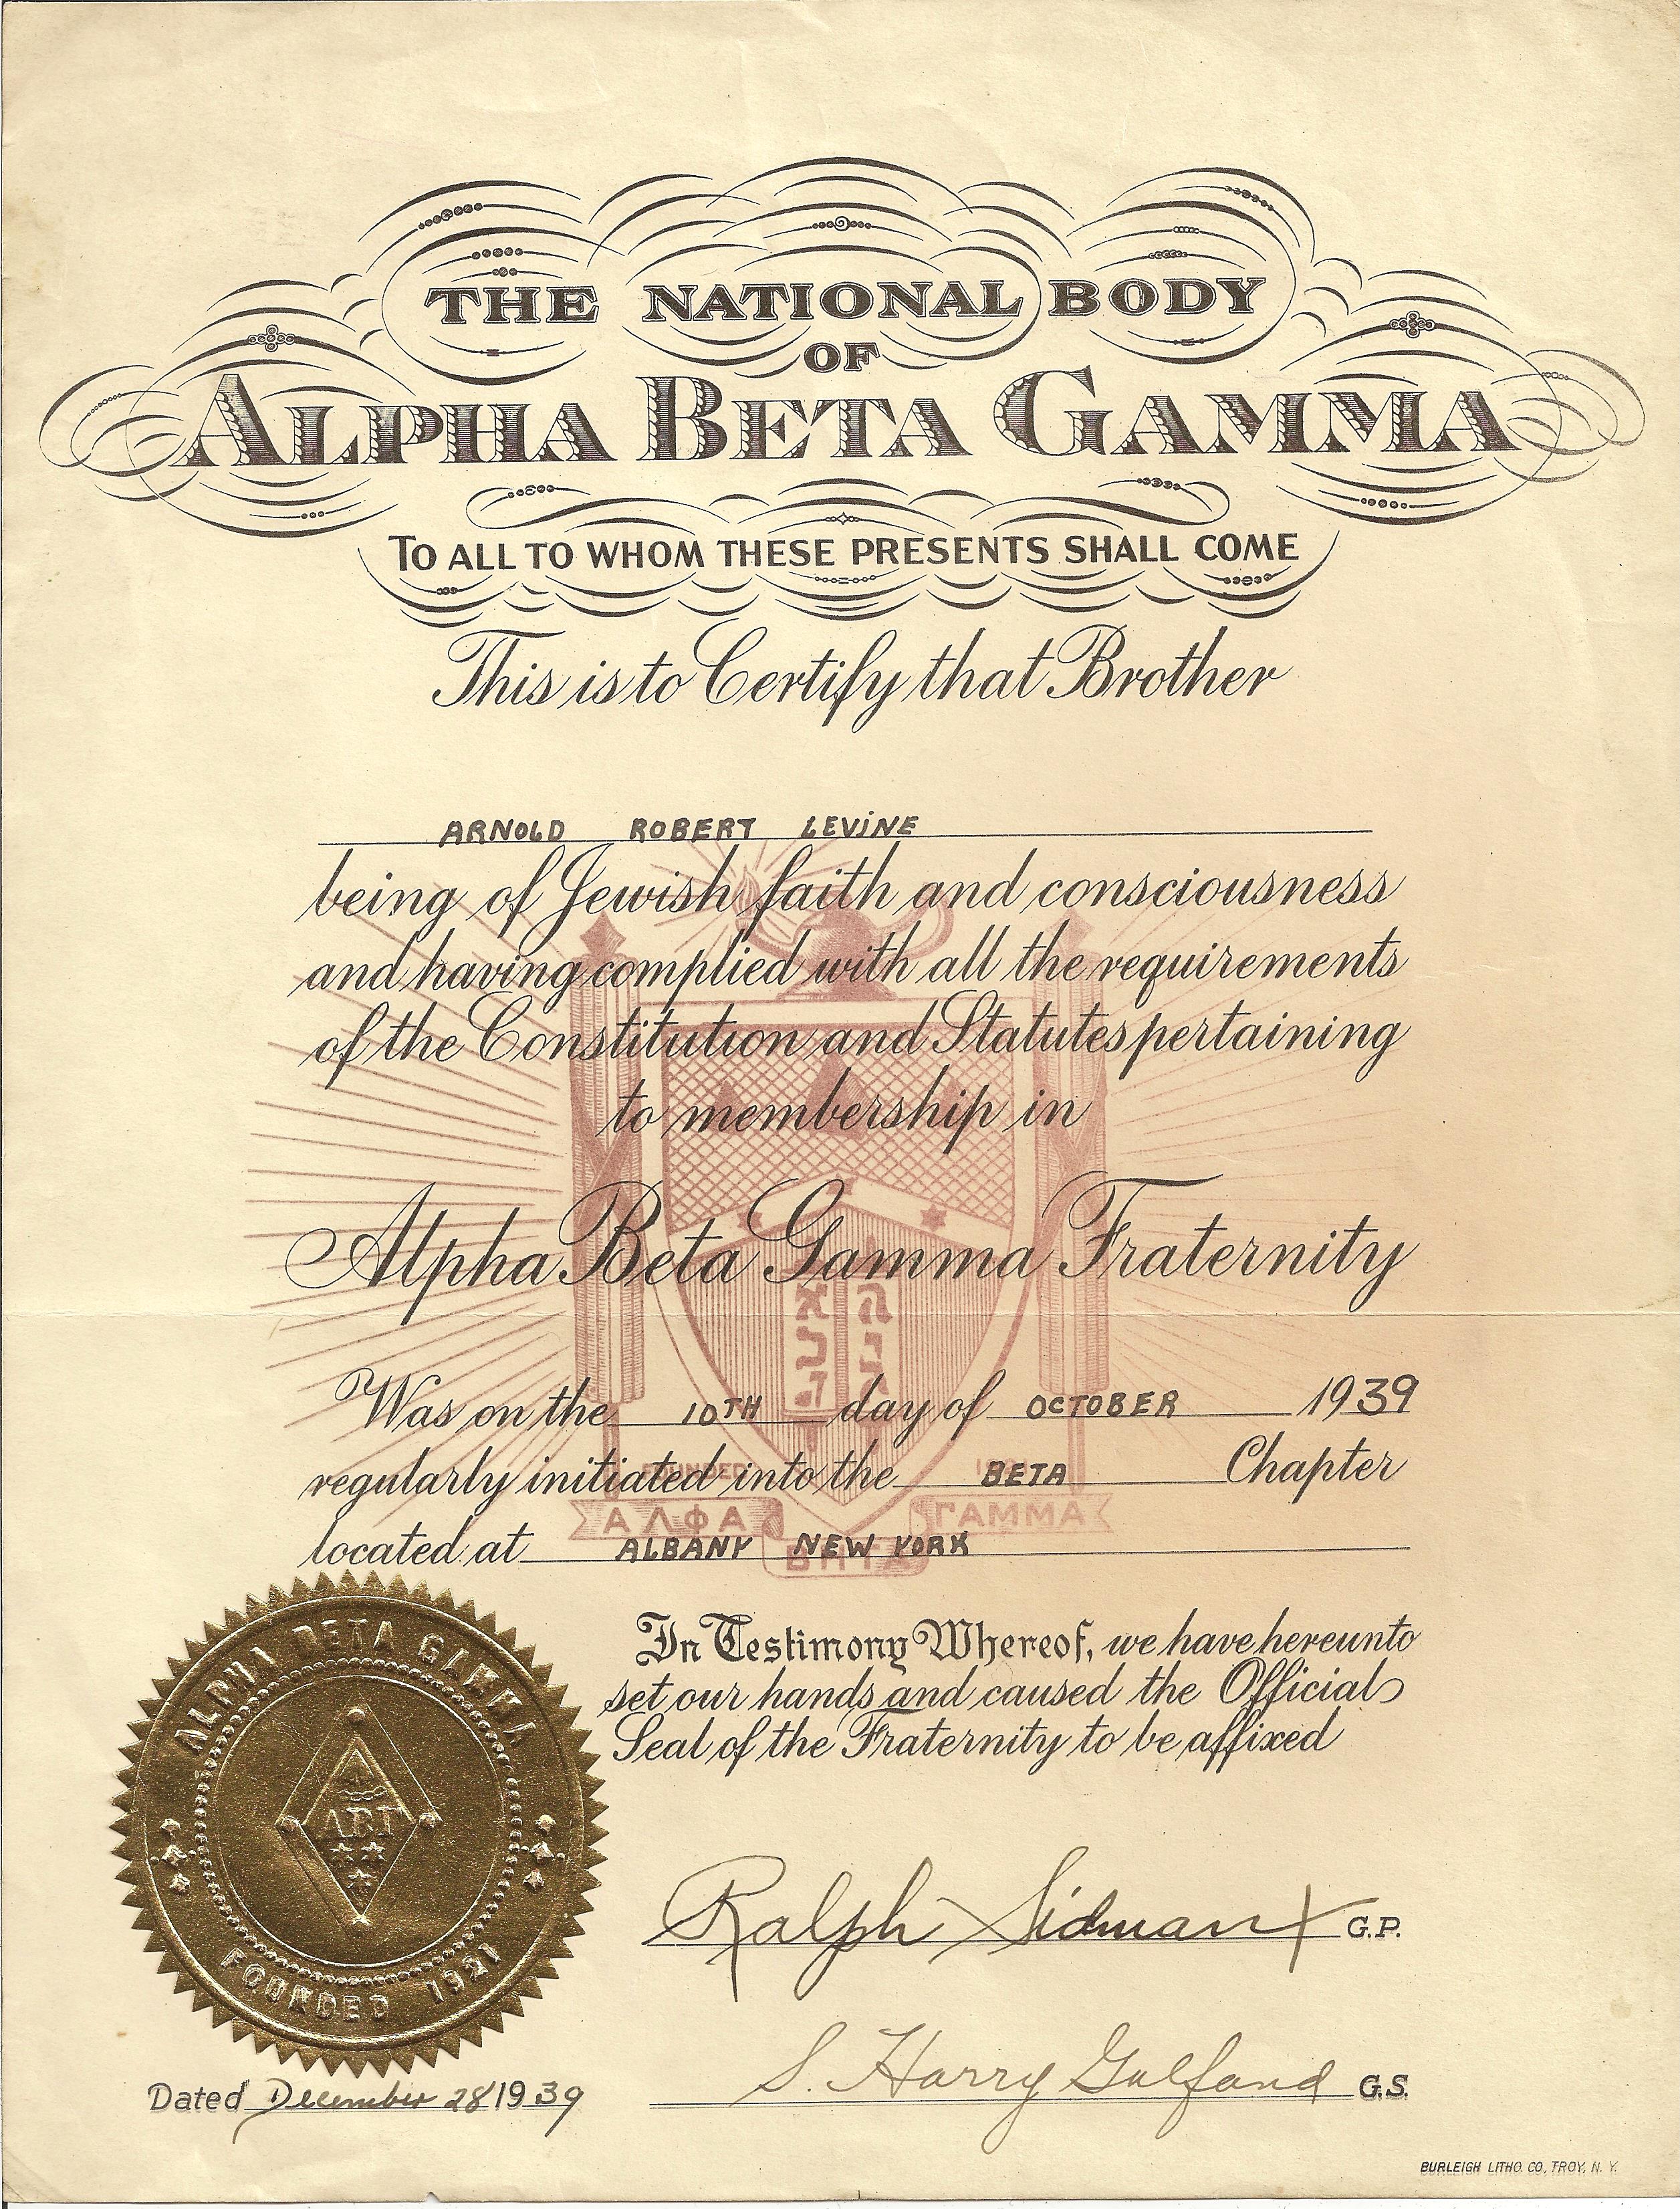 THE NATIONAL BODY
OF
ALPHA BETA GAMMA
TO ALL TO WHOM THESE PRESENTS SHALL COME
This is to Certify that Brother
ARNOLD ROBERT LEVINE
being of Jewish faith and consciousness
and having complied with all the requirements
of the Constitution and Statutes pertaining
to membership in
Alpha Beta Gamma Fraternity
Was on the 10TH day of OCTOBER 1939
regularly initiated into the BETA Chapter
FOUNDED
ΑΛΦΑ ΓΑΜΜΑ
located at ALBANY NEW YORK
ΒΗΤΑ
In Testimony Whereof, we have hereunto
set our hands and caused the Official
Seal of the Fraternity to be affixed
ALPHA BETA GAMMA
ΑΒΓ
FOUNDED 1921
Ralph Sidman G.P.
S. Harry Galfand G.S.
Dated December 28 1939
BURLEIGH LITHO. CO., TROY, N. Y.